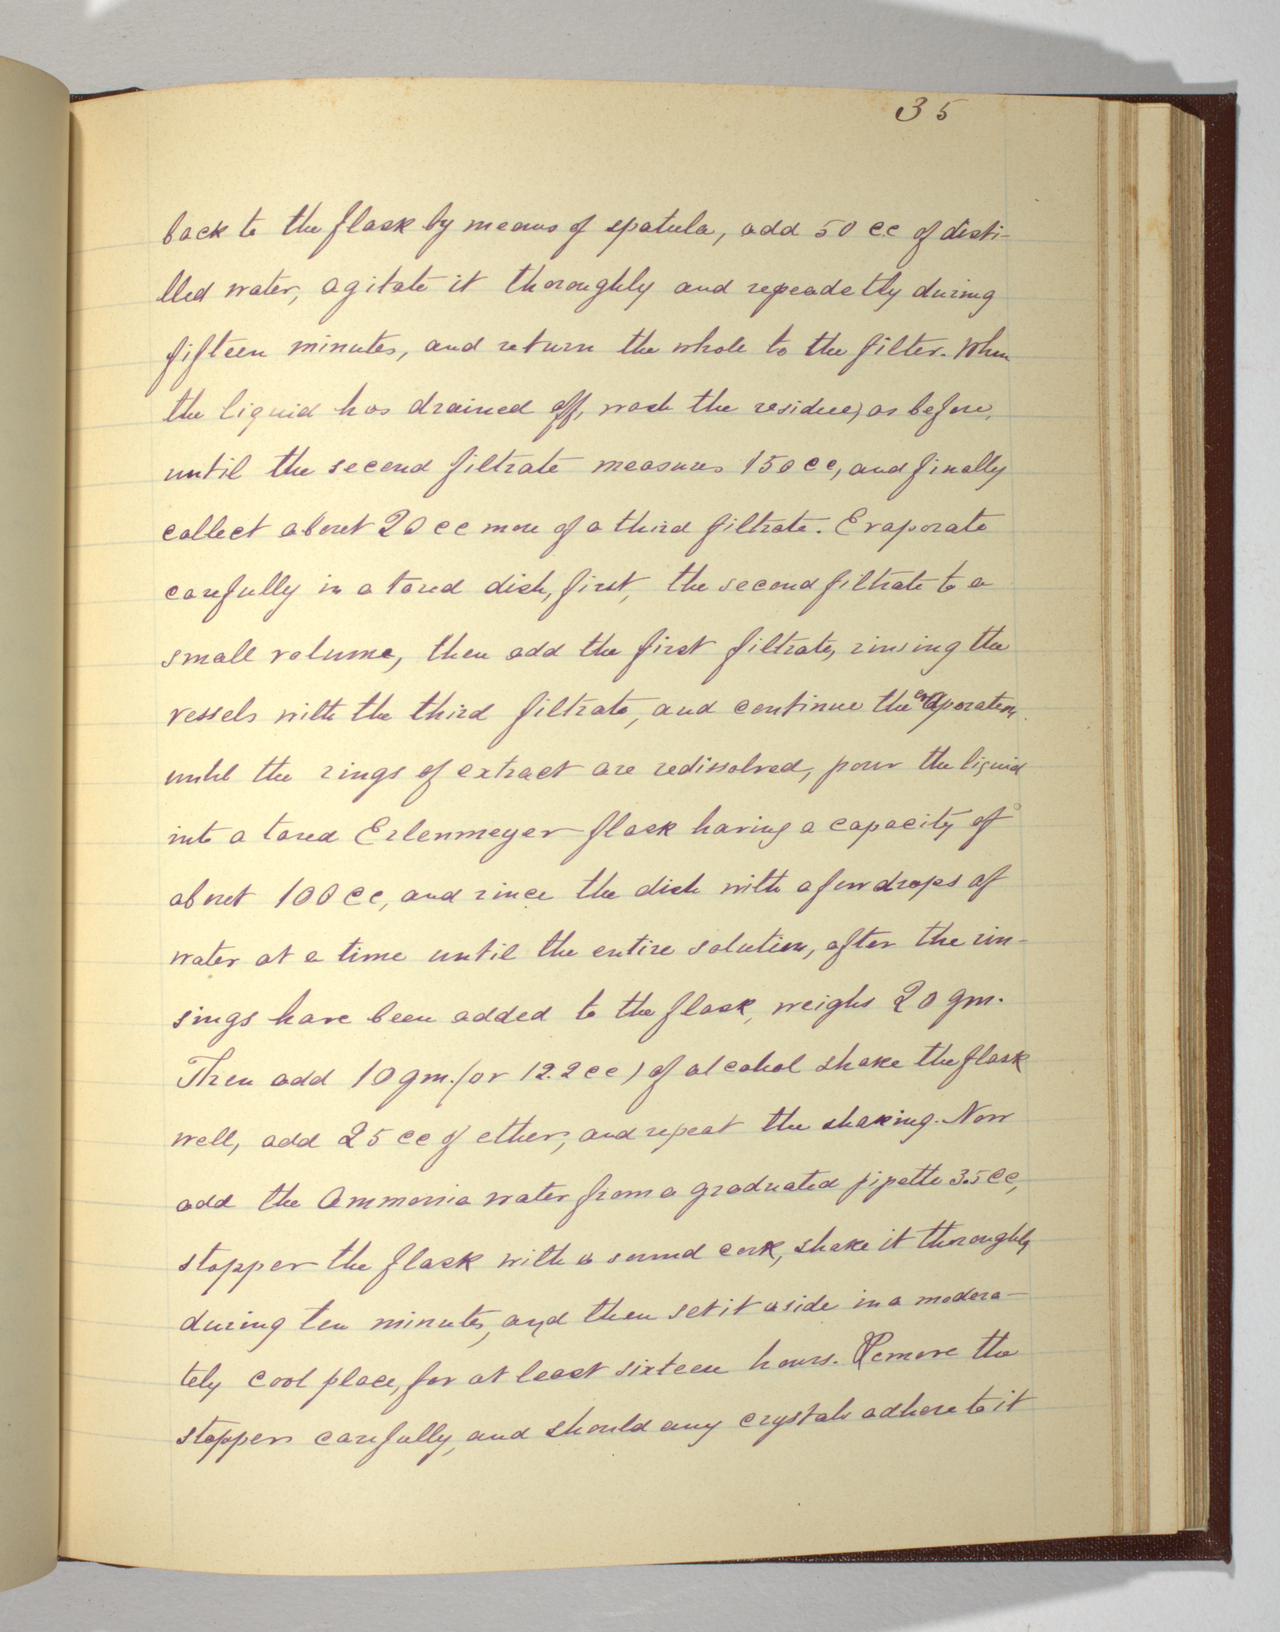 35
back to the flask by means of spatula, add 50 cc of disti-
lled water, agitate it thoroughly and repeadetly during
fifteen minutes, and return the whole to the filter. When
the liquid has drained off, wash the residue, as before,
until the second filtrate measures 150 cc, and finally
collect about 20 cc more of a third filtrate. Evaporate
carefully in a tared dish, first, the second filtrate to a
small volume, then add the first filtrate, rinsing the
vessels with the third filtrate, and continue the evaporation
until the rings of extract are redissolved, pour the liquid
into a tared Erlenmeyer flask having a capacity of
about 100 cc, and rince the dish with a few drops of
water at a time until the entire solution, after the rin-
sings have been added to the flask, weighs 20 gm.
Then add 10 gm. (or 12.2 cc) of alcohol shake the flask
well, add 25 cc of ether, and repeat the shaking. Now
add the Ammonia water from a graduated pipette 3.5 cc,
stopper the flask with a sound cork, shake it thoroughly
during ten minutes, and then set it aside in a modera-
tely cool place, for at least sixteen hours. Remove the
stopper carefully, and should any crystals adhere to it